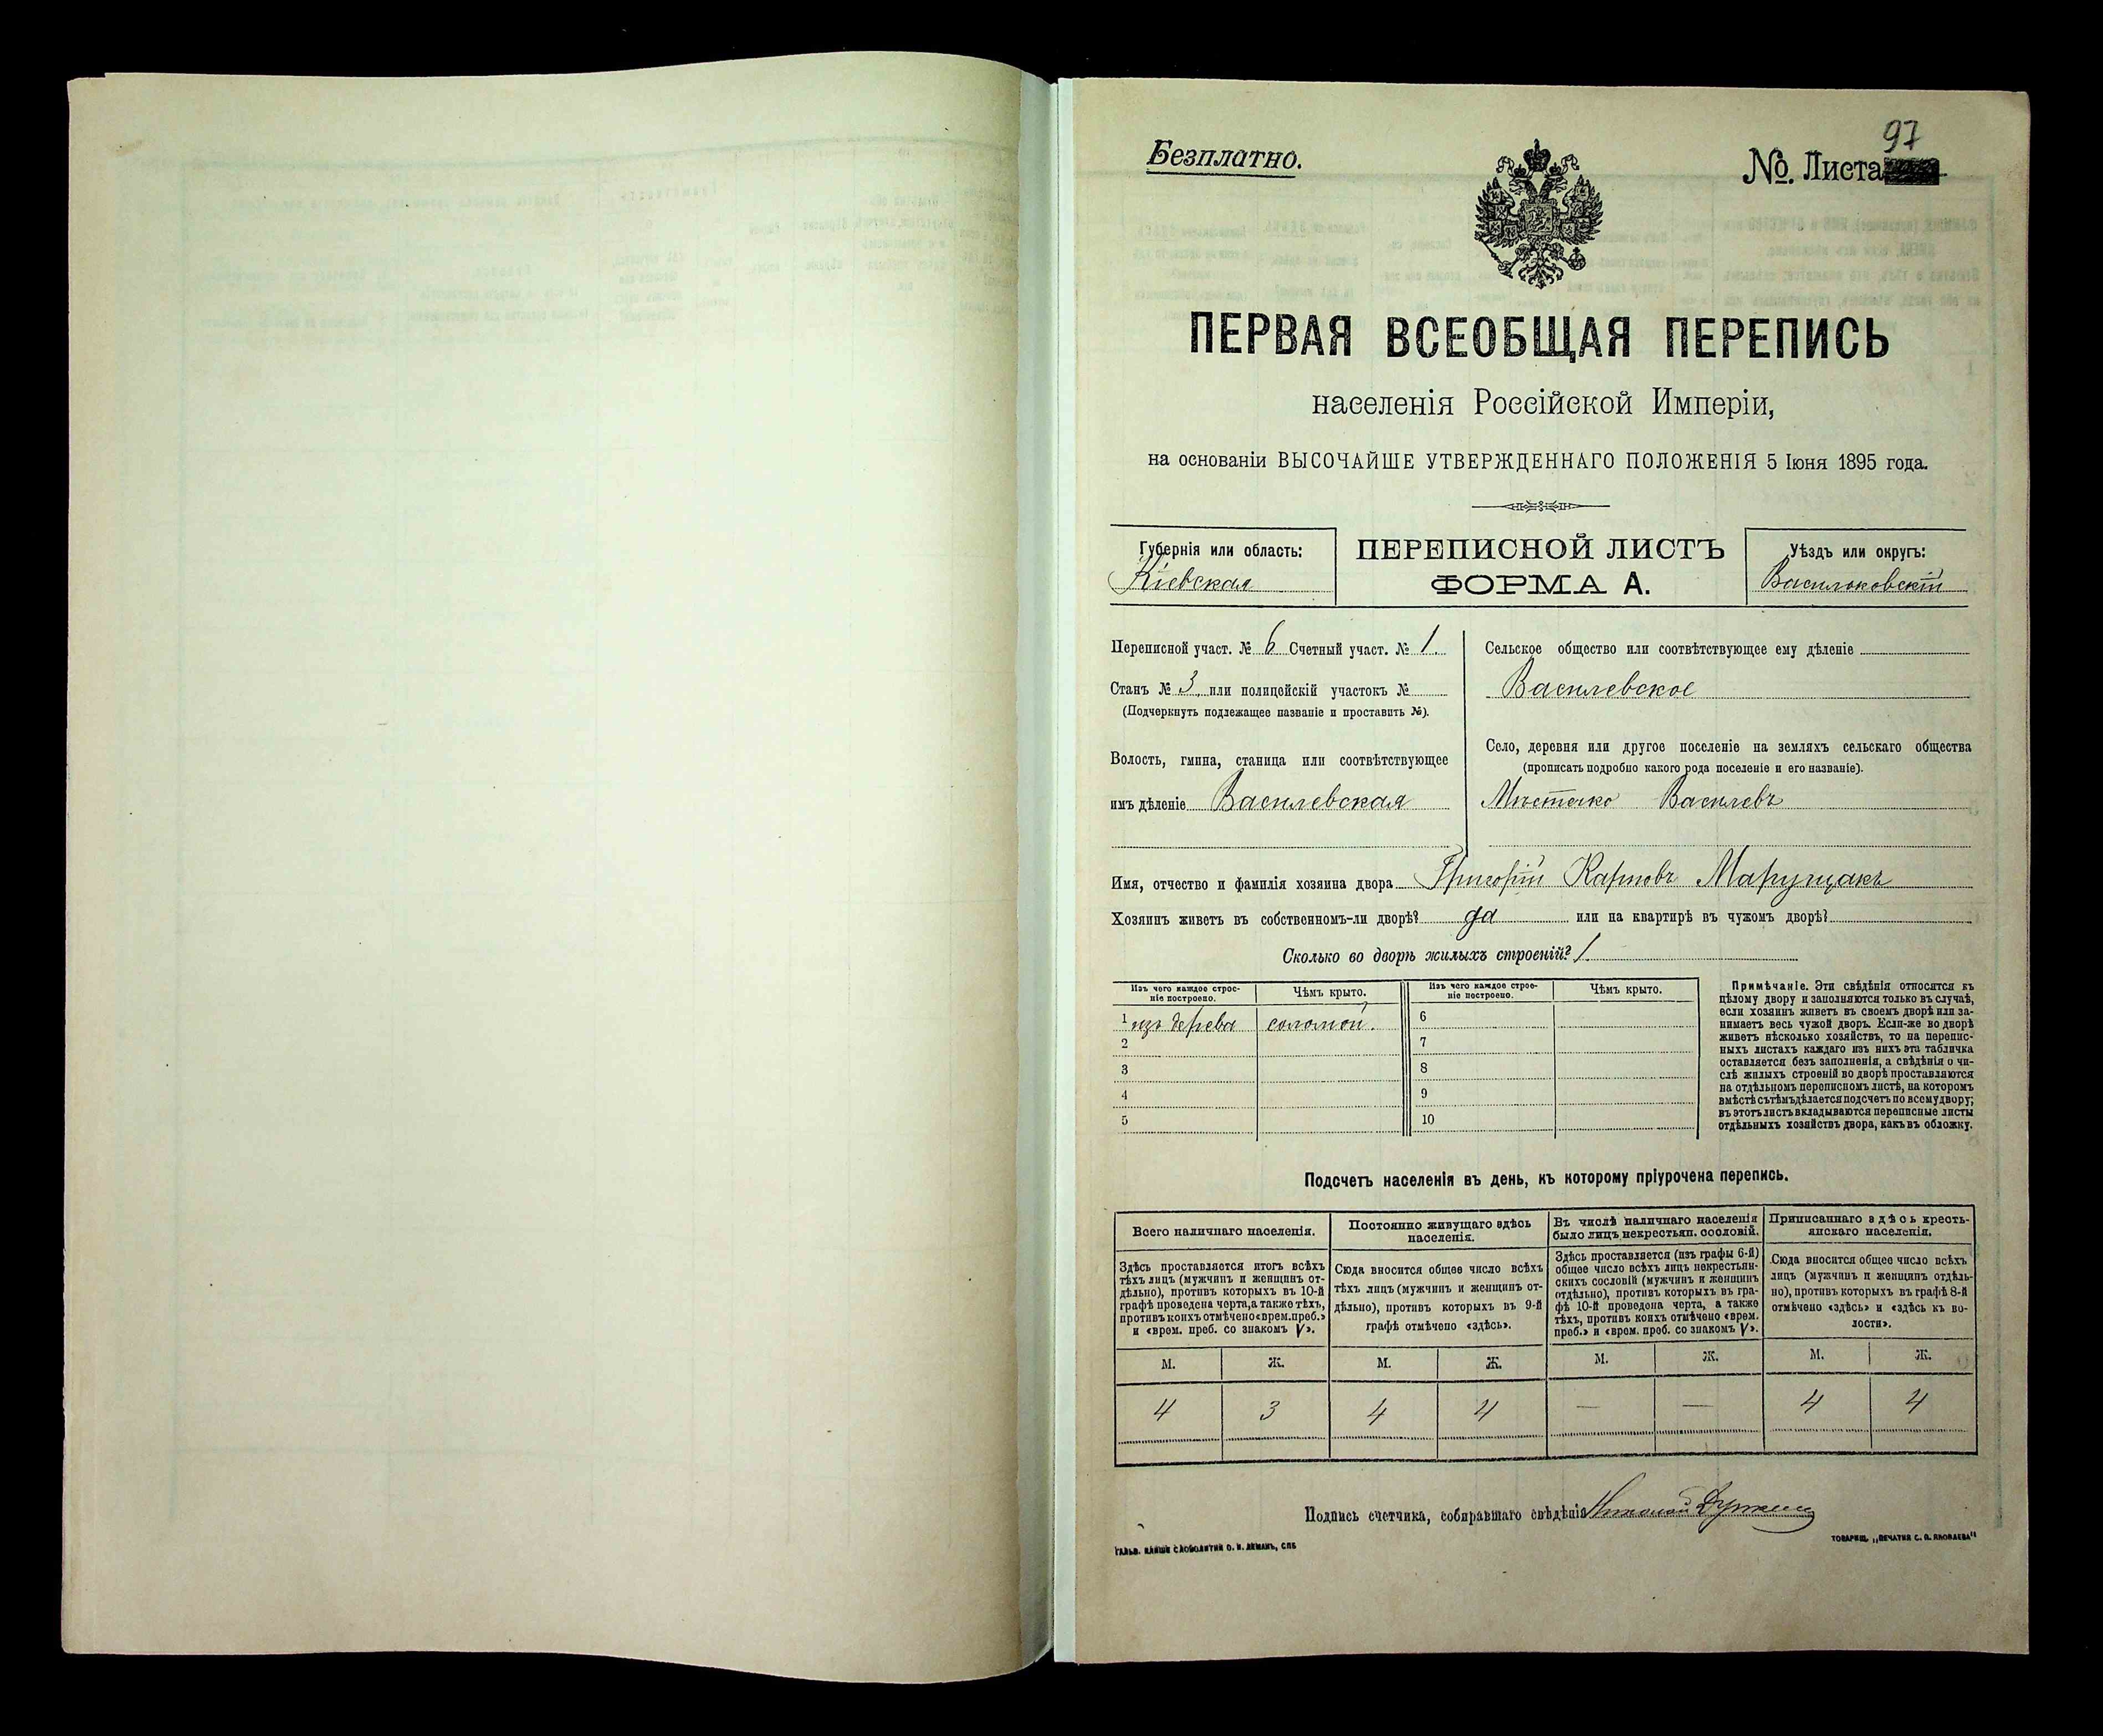 Безплатно.
97
№. Листа
ПЕРВАЯ ВСЕОБЩАЯ ПЕРЕПИСЬ
населенія Россійской Имперіи,
на основаніи ВЫСОЧАЙШЕ УТВЕРЖДЕННАГО ПОЛОЖЕНІЯ 5 Іюня 1895 года.
Губернія или область:
Кіевская
ПЕРЕПИСНОЙ ЛИСТЪ
ФОРМА А.
Уѣздъ или округъ:
Васильковскій
Переписной участ. № 6 Счетный участ. № 1.
Станъ № 3, или полицейскій участокъ №
(Подчеркнуть подлежащее названіе и проставить №).
Волость, гмина, станица или соотвѣтствующее
имъ дѣленіе Василевская
Сельское общество или соотвѣтствующее ему дѣленіе
Василевское
Село, деревня или другое поселеніе на земляхъ сельскаго общества
(прописать подробно какого рода поселеніе и его названіе).
Мѣстечко Василевъ
Имя, отчество и фамилія хозяина двора Григорій Карповъ Марущакъ
Хозяинъ живетъ въ собственномъ-ли дворѣ? да или на квартирѣ въ чужомъ дворѣ?
Сколько во дворѣ жилыхъ строеній? 1
Изъ чего каждое строе-
ніе построено.
Чѣмъ крыто.
Изъ чего каждое строе-
ніе построено.
Чѣмъ крыто.
1 изъ дерева соломой. 6
2 7
3 8
4 9
5 10
Примѣчаніе. Эти свѣдѣнія относятся къ
цѣлому двору и заполняются только въ случаѣ,
если хозяинъ живетъ въ своемъ дворѣ или за-
нимаетъ весь чужой дворъ. Если-же во дворѣ
живетъ нѣсколько хозяйствъ, то на перепис-
ныхъ листахъ каждаго изъ нихъ эта табличка
оставляется безъ заполненія, а свѣдѣнія о чи-
слѣ жилыхъ строеній во дворѣ проставляются
на отдѣльномъ переписномъ листѣ, на которомъ
вмѣстѣ съ тѣмъ дѣлается подсчетъ по всему двору;
въ этотъ листъ вкладываются переписные листы
отдѣльныхъ хозяйствъ двора, какъ въ обложку.
Подсчетъ населенія въ день, къ которому пріурочена перепись.
Всего наличнаго населенія.
Здѣсь проставляется итогъ всѣхъ
тѣхъ лицъ (мужчинъ и женщинъ от-
дѣльно), противъ которыхъ въ 10-й
графѣ проведена черта, а также тѣхъ,
противъ коихъ отмѣчено «врем. преб.»
и «врем. преб. со знакомъ V».
Постоянно живущаго здѣсь
населенія.
Сюда вносится общее число всѣхъ
тѣхъ лицъ (мужчинъ и женщинъ от-
дѣльно), противъ которыхъ въ 9-й
графѣ отмѣчено «здѣсь».
Въ числѣ наличнаго населенія
было лицъ некрестьян. сословій.
Здѣсь проставляется (изъ графы 6-й)
общее число всѣхъ лицъ некрестьян-
скихъ сословій (мужчинъ и женщинъ
отдѣльно), противъ которыхъ въ гра-
фѣ 10-й проведена черта, а также
тѣхъ, противъ коихъ отмѣчено «врем.
преб.» и «врем. преб. со знакомъ V».
Приписаннаго здѣсь кресть-
янскаго населенія.
Сюда вносится общее число всѣхъ
лицъ (мужчинъ и женщинъ отдѣль-
но), противъ которыхъ въ графѣ 8-й
отмѣчено «здѣсь» и «здѣсь къ во-
лости».
М. Ж. М. Ж. М. Ж. М. Ж.
4 3 4 4 — — 4 4
Подпись счетчика, собиравшаго свѣдѣнія Николай
ТОВАРИЩ. „ПЕЧАТНЯ С. П. ЯКОВЛЕВА“